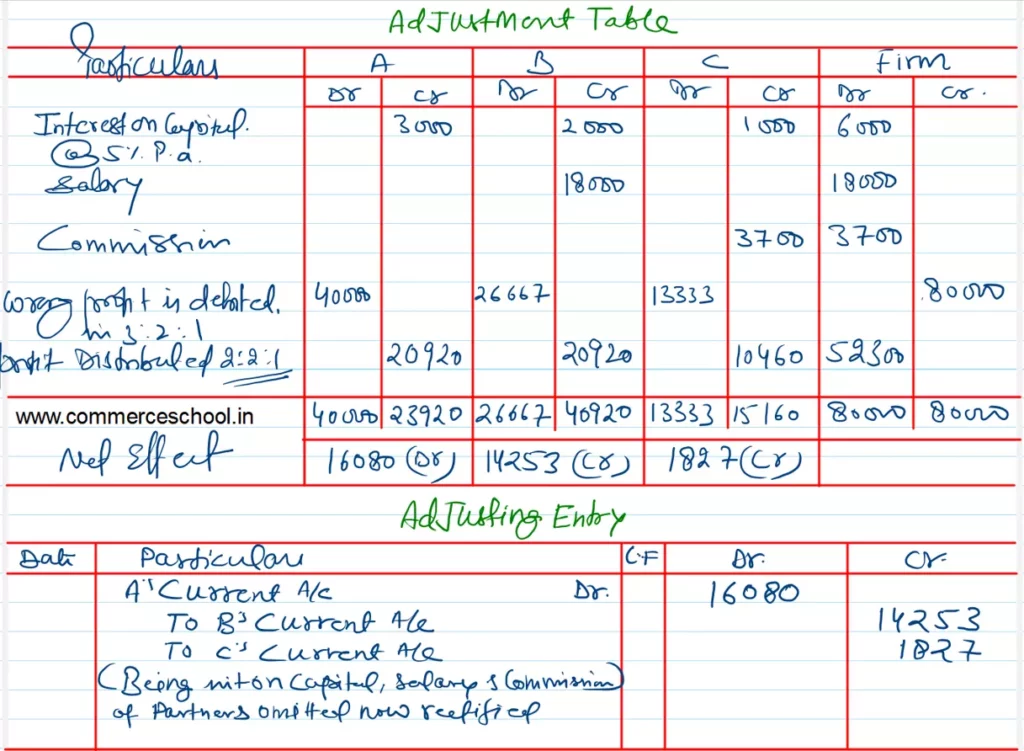 Adjustment Table
Particulars A B C Firm
Dr Cr Dr Cr Dr Cr Dr Cr.
Interest on Capital. 3000 2000 1000 6000
@ 5% P.a.
Salary 18000 18000
Commission 3700 3700
wrong profit is debited. 40000 26667 13333 80000
in 3:2:1
profit Distributed 2:2:1 20920 20920 10460 52300
www.commerceschool.in 40000 23920 26667 40920 13333 15160 80000 80000
Net Effect 16080 (Dr) 14253 (Cr) 1827 (Cr)
Adjusting Entry
Date Particulars L.F Dr. Cr.
A's Current A/c Dr. 16080
To B's Current A/c 14253
To C's Current A/c 1827
(Being int on Capital, salary & Commission)
of Partners omitted now rectified